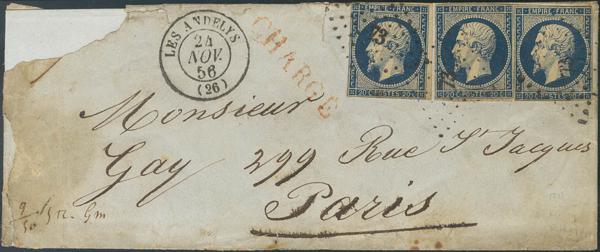 LES ANDELYS
24
NOV.
56
(26)
CHARGÉ
EMPIRE-FRANC. EMPIRE-FRANC. EMPIRE-FRANC.
20 C. POSTES 20 C. 20 C. POSTES 20 C. 20 C. POSTES 20 C.
Monsieur
Gay 299 Rue St Jacques
Paris